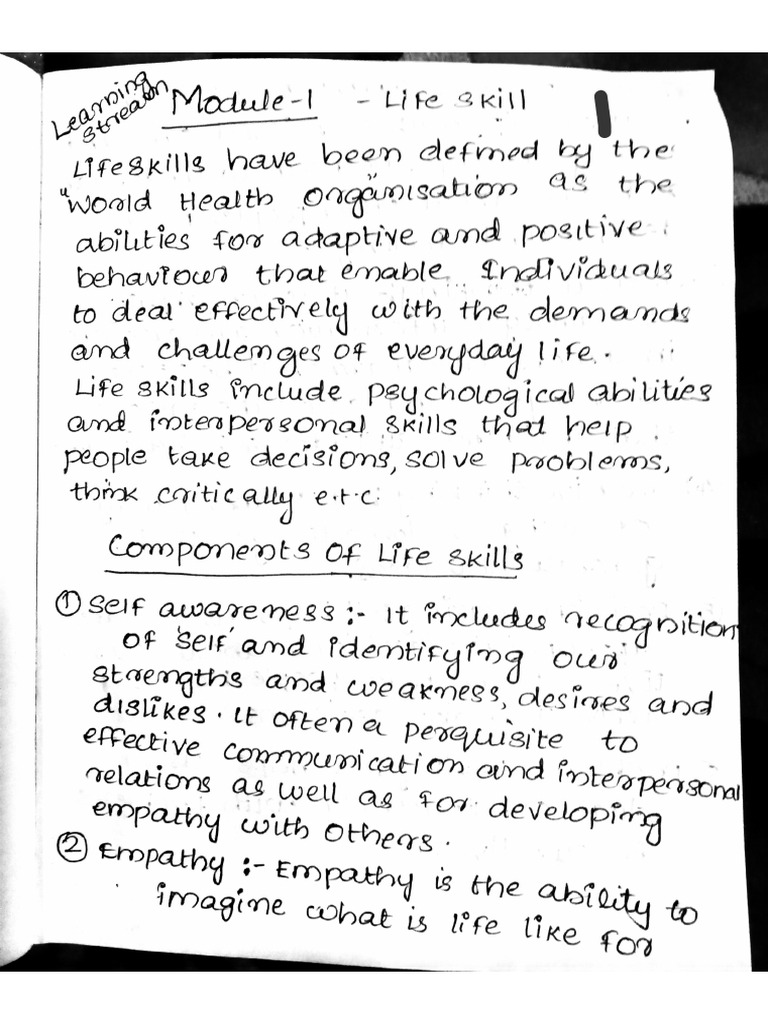 Learning
Stream
Module-1 - Life skill
1
Life skills have been defined by the
"World Health Organisation" as the
abilities for adaptive and positive
behaviour that enable Individuals
to deal effectively with the demands
and challenges of everyday life.
Life skills include psychological abilities
and interpersonal skills that help
people take decisions, solve problems,
think critically e.t.c
Components of Life skills
① Self awareness :- It includes recognition
of 'self' and identifying our
strengths and weakness, desires and
dislikes. It often a perquisite to
effective communication and interpersonal
relations as well as for developing
empathy with others.
② Empathy :- Empathy is the ability to
imagine what is life like for